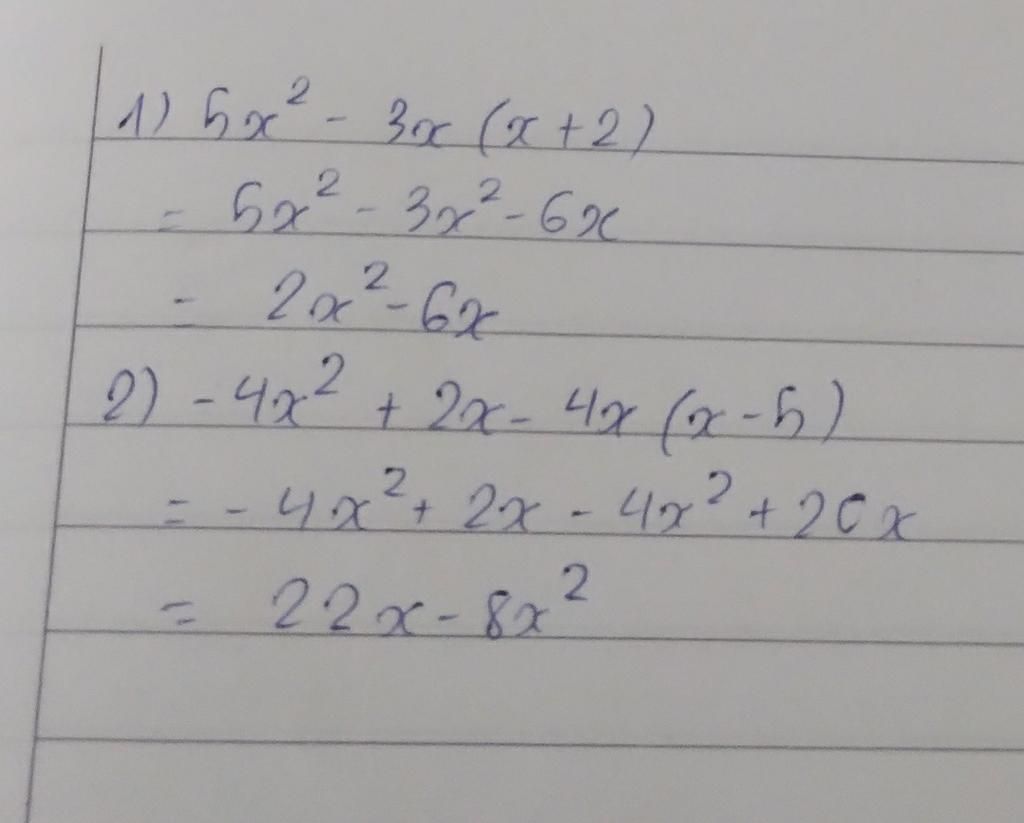 1) 5x² - 3x (x + 2)
= 5x² - 3x² - 6x
= 2x² - 6x
2) - 4x² + 2x - 4x (x - 5)
= - 4x² + 2x - 4x² + 20x
= 22x - 8x²